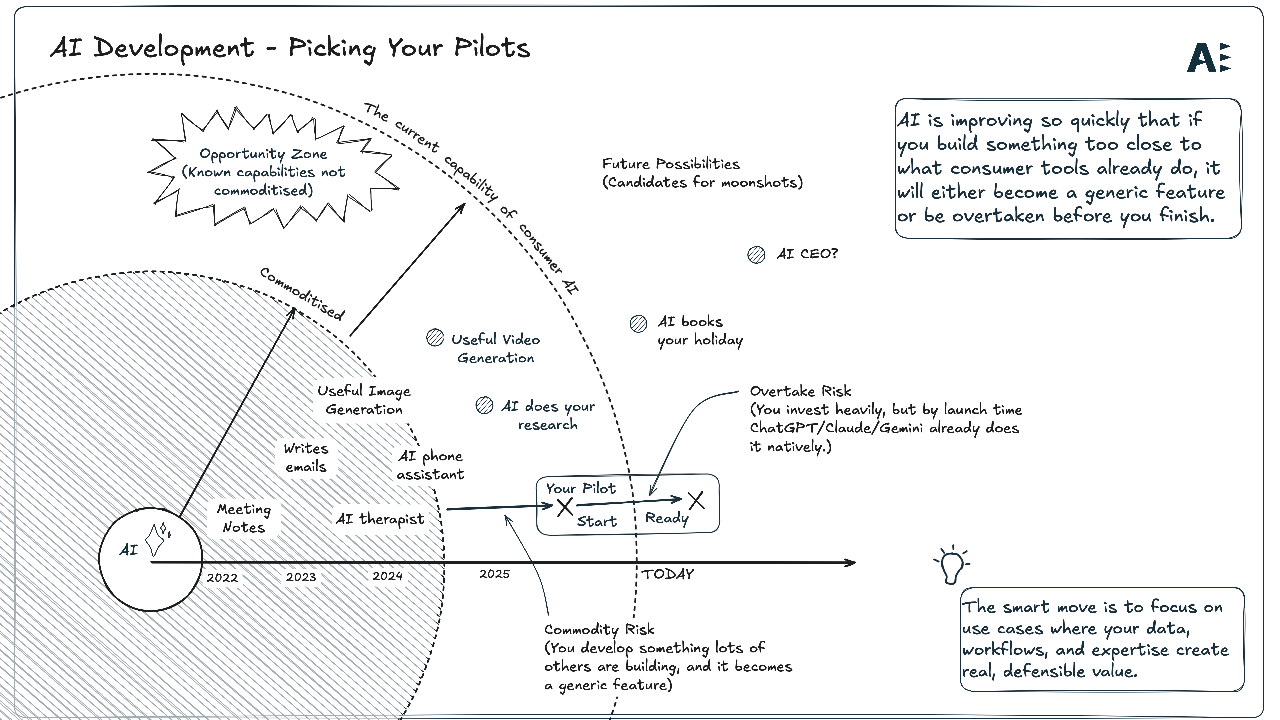 AI Development - Picking Your Pilots
AE
AI is improving so quickly that if
you build something too close to
what consumer tools already do, it
will either become a generic feature
or be overtaken before you finish.
The current capability of consumer AI
Opportunity Zone
(Known capabilities not
commoditised)
Future Possibilities
(Candidates for moonshots)
AI CEO?
Commoditised
AI books
your holiday
Useful Video
Generation
Useful Image
Generation
AI does your
research
Overtake Risk
(You invest heavily, but by launch time
ChatGPT/Claude/Gemini already does
it natively.)
Writes
emails
AI phone
assistant
Your Pilot
Start
Ready
Meeting
Notes
AI therapist
AI
2022
2023
2024
2025
TODAY
Commodity Risk
(You develop something lots of
others are building, and it becomes
a generic feature)
The smart move is to focus on
use cases where your data,
workflows, and expertise create
real, defensible value.